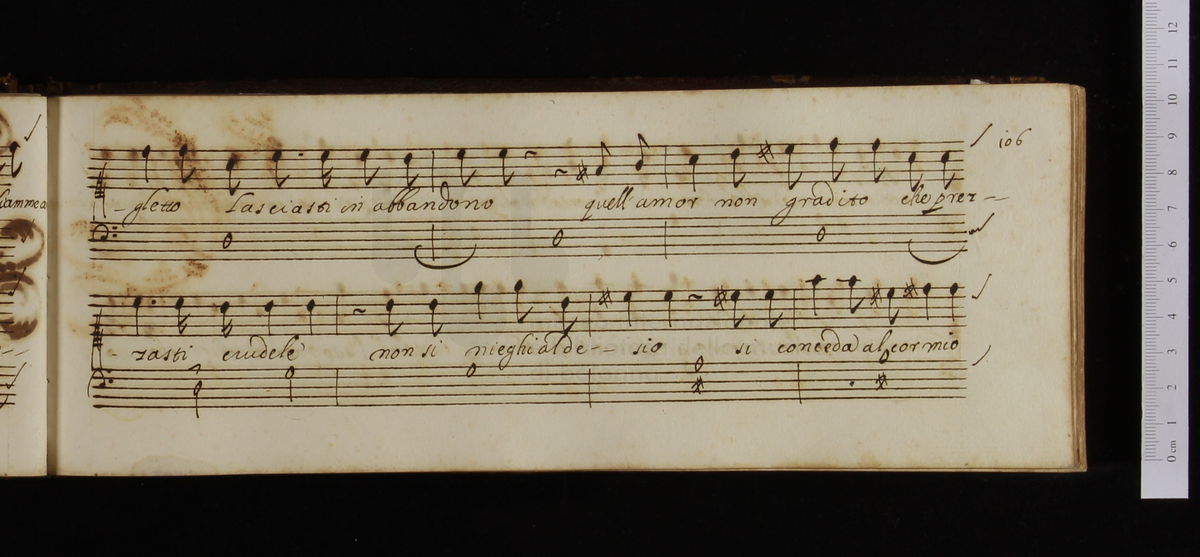 106
fiamme a
-gletto Lasciasti in abbandono quell'amor non gradito che prez--
-zasti crudele non si nieghi al de--sio si conceda al cor mio
12
11
10
9
8
7
6
5
4
3
2
1
0 cm